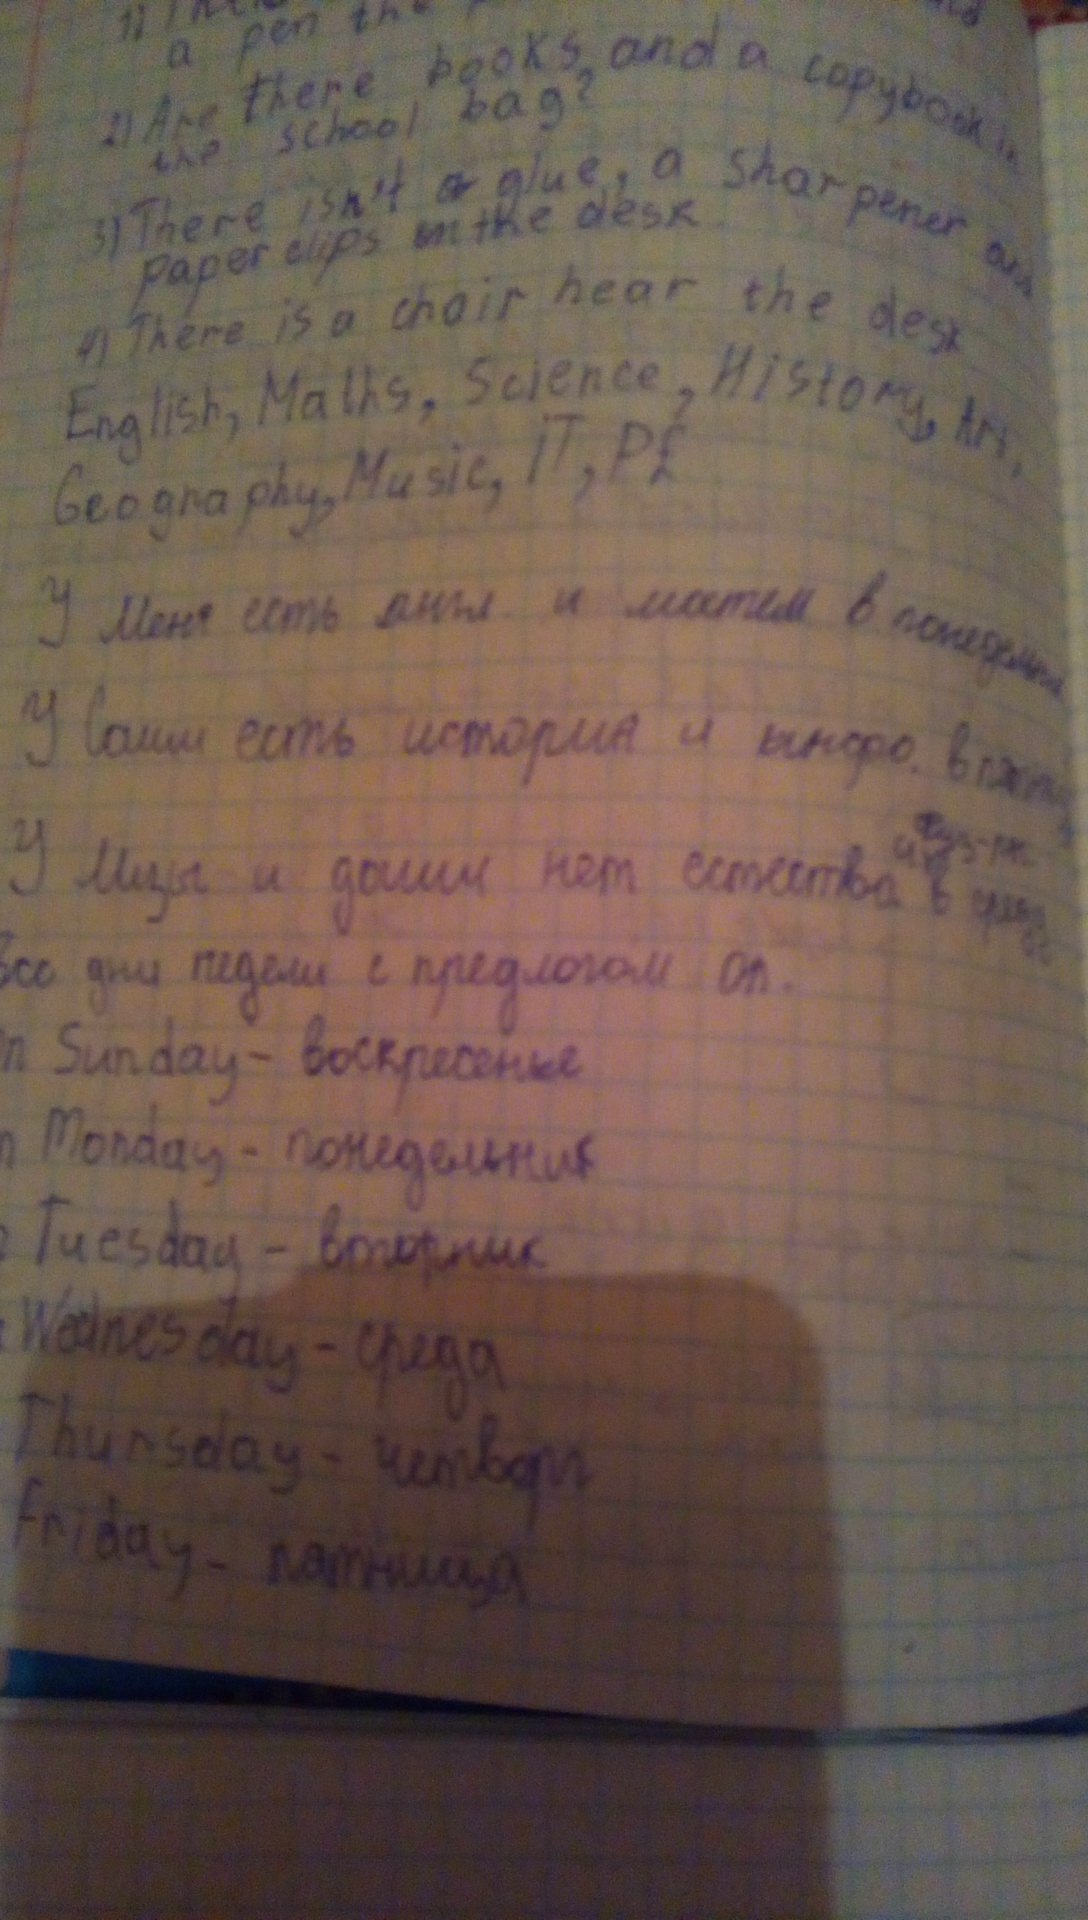 1)
a pen the
2) Are there books and a copybook in
the school bag?
3) There isn't a glue, a sharpener and
paper clips on the desk
4) There is a chair near the desk
English, Maths, Science, History, Art,
Geography, Music, IT, PE
У меня есть англ и матем в понедельник
У Сами есть история и инфо. в пятницу
физ-ра
У Лизы и даши нет естества и в среду
Все дни недели с предлогом on.
on Sunday - воскресенье
on Monday - понедельник
Tuesday - вторник
Wednesday - среда
Thursday - четверг
Friday - пятница